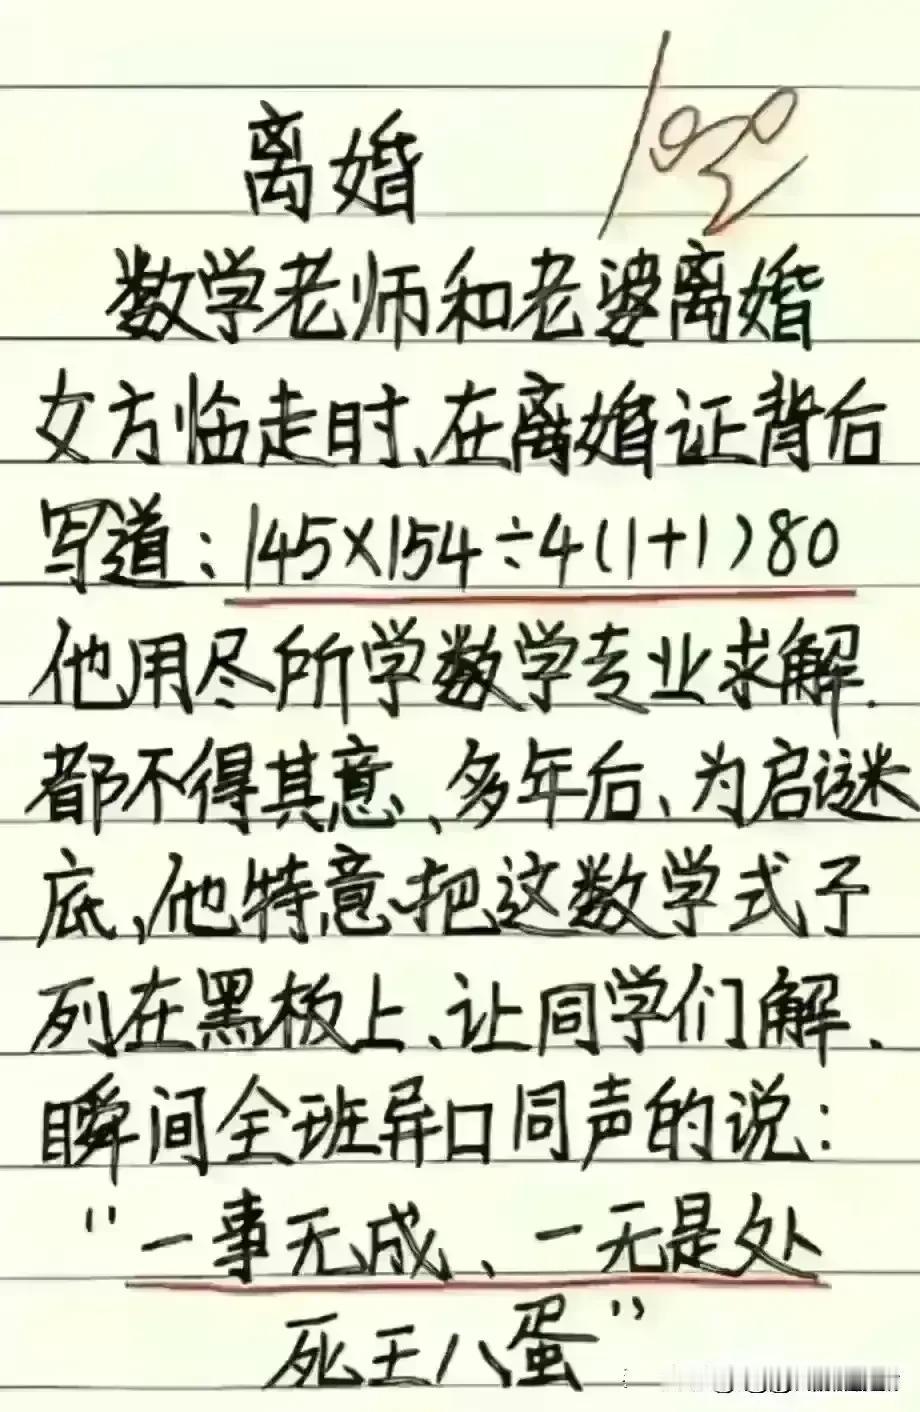 离婚
数学老师和老婆离婚
女方临走时、在离婚证背后
写道:145×154÷4(1+1)80
他用尽所学数学专业求解.
都不得其意、多年后、为启谜
底、他特意把这数学式子
列在黑板上、让同学们解.
瞬间全班异口同声的说:
"一事无成、一无是处
死王八蛋"